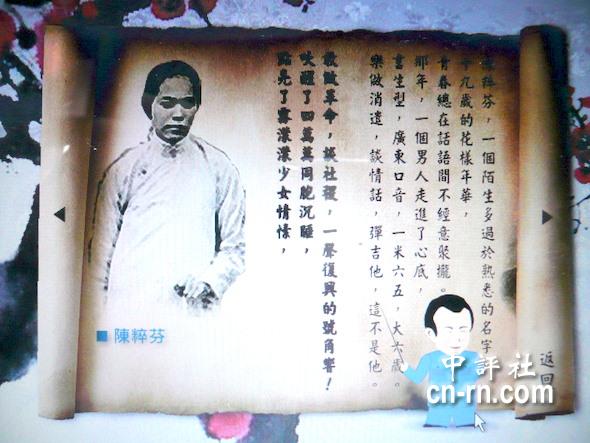 陳粹芬，一個陌生多過於熟悉的名字
十九歲的花樣年華，
青春總在話語間不經意聚攏。
那年，一個男人走進了心底，
書生型，廣東口音，一米六五，大六歲。
樂做消遣，談情話，彈吉他，這不是他。
敢做革命，談社稷，一聲復興的號角響！
醒了四萬萬同胞沉睡，
點亮了霧濛濛少女情愫，
陳粹芬
返回
中評社
cn-rn.com